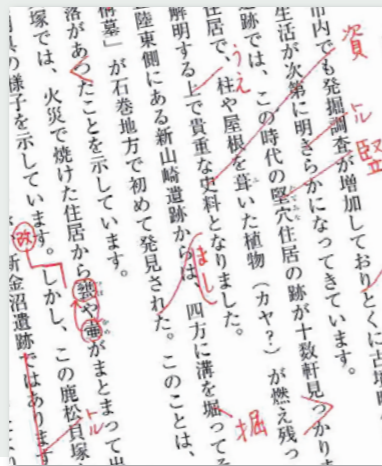 市内でも発掘調査が増加しておりとくに古墳
生活が次第に明きらかになってきています。
遺跡では、この時代の堅穴住居の跡が十数軒見つかりま
住居で、柱や屋根を葺いた植物（カヤ？）が燃え残っ
解明する上で貴重な史料となりました。
陸東側にある新山崎遺跡からは、四方に溝を堀って
墓」が石巻地方で初めて発見された。このことは、
落があったことを示しています。
塚では、火災で焼けた住居から甕や壷がまとまって出
の様子を示しています。しかし、この鹿松貝塚
新金沼遺跡ではあります
資
トル
竪
うえ
掘
改
トル